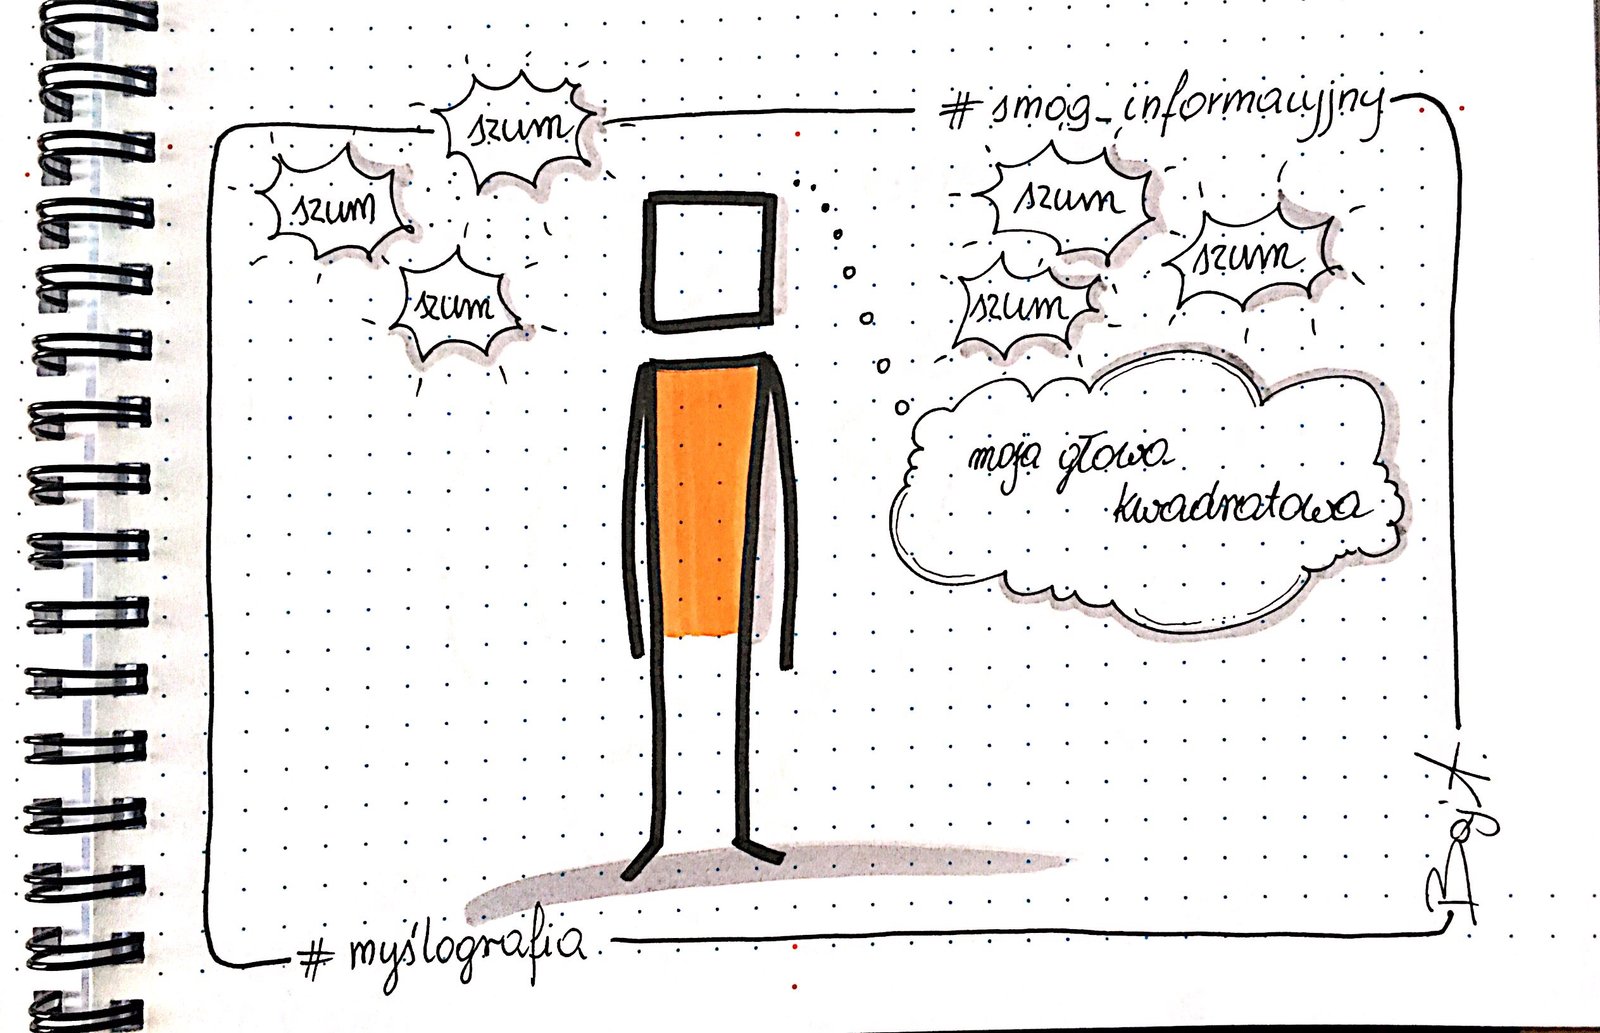 # smog_informacyjny
szum
szum
szum
szum
szum
szum
moja głowa
kwadratowa
# myślografia